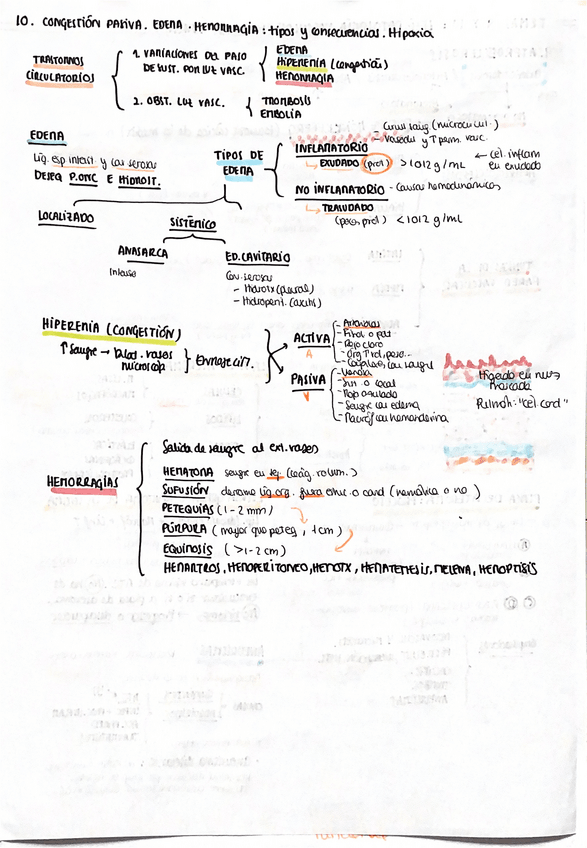 10. CONGESTIÓN PASIVA. EDEMA. HEMORRAGIA: tipos y consecuencias. Hipoxia
TRASTORNOS CIRCULATORIOS
1. VARIACIONES DEL PASO DE SUST. POR LUZ VASC.
EDEMA
HIPEREMIA (congestión)
HEMORRAGIA
2. OBST. LUZ VASC.
TROMBOSIS
EMBOLIA
EDEMA
Líq. esp intest. y cav serosas
DESEQ P.ONC E HIDROST.
TIPOS DE EDEMA
INFLAMATORIO
- Vasodil y ↑ perm. vasc.
EXUDADO (prot) > 1012 g/mL ← cél. inflam en exudado
NO INFLAMATORIO - Causas hemodinámicas
TRASUDADO
(poca prot) < 1012 g/mL
LOCALIZADO
SISTÉNICO
ANASARCA
Intenso
ED. CAVITARIO
Cav. serosas
- Hidrotx (pleural)
- Hidroperit. (ascitis)
HIPEREMIA (CONGESTIÓN)
↑ Sangre → Dilat. vasos microscop
ACTIVA
A
- Arteriolas
- Fisiol o pat
- Rojo claro
PASIVA
V
- Venosa
- Sin o local
- Rojo azulado
- Sangre con edema
- Macróf con hemosiderina
Hígado en nuez moscada
Riñón: "cél card"
HEMORRAGIAS
Salida de sangre al ext. vasos
HEMATOMA sangre en tej.
SUFUSIÓN derrame líq. org.
PETEQUIAS (1-2 mm)
PÚRPURA (mayor que peteq, 1 cm)
EQUIMOSIS (>1-2 cm)
HEMARTROS, HEMOPERITONEO, HEMOTX, HEMATEMESIS, MELENA, HEMOPTISIS